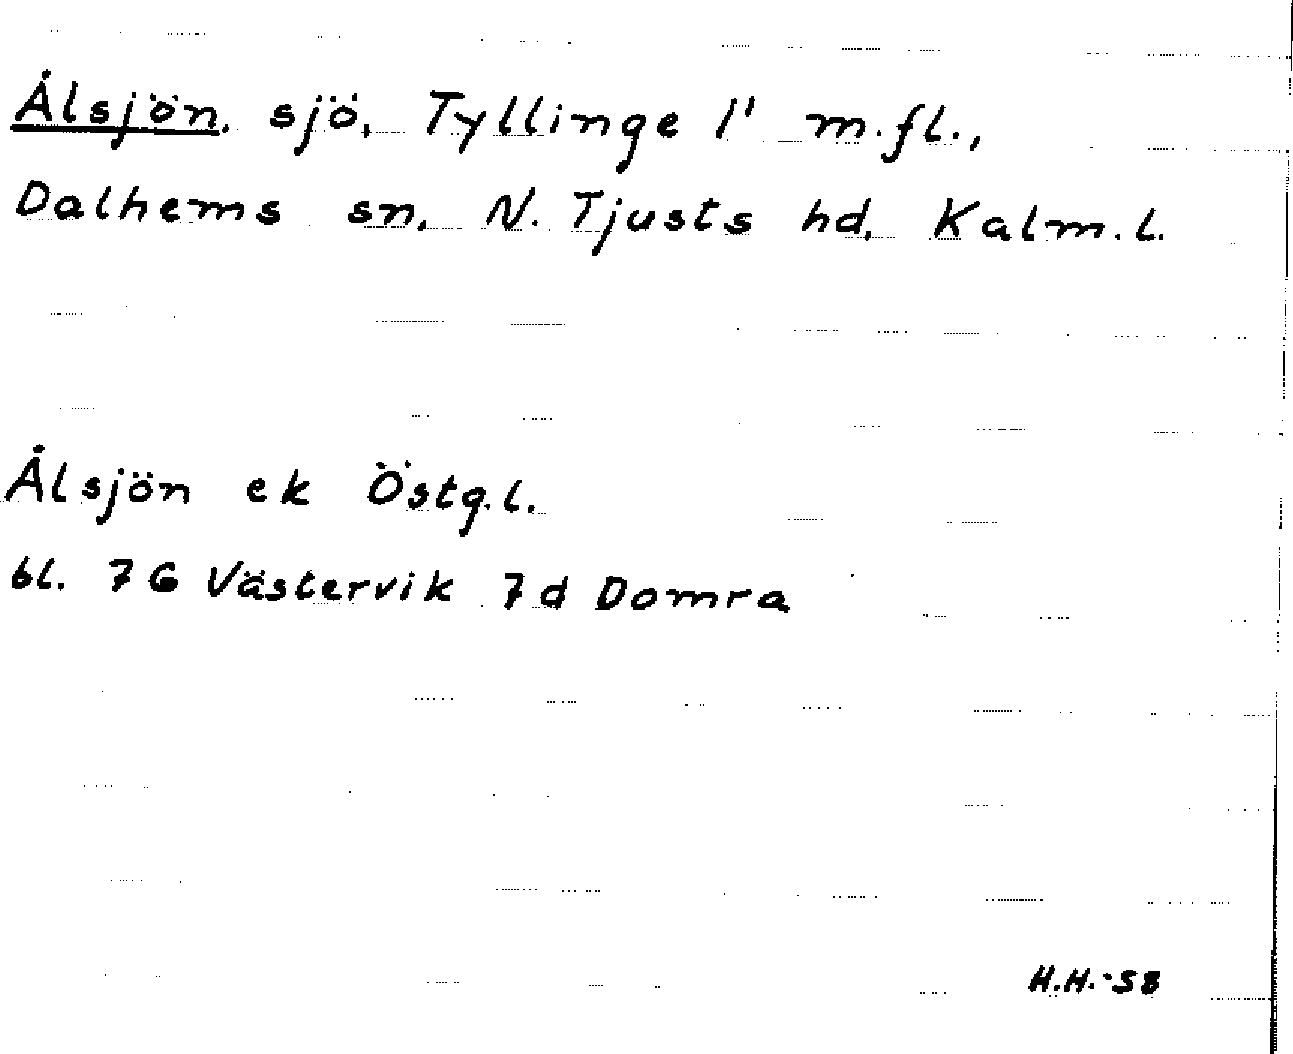 Ålsjön, sjö, Tyllinge 1' m.fl.,
Dalhems sn, N. Tjusts hd, Kalm. l.
Ålsjön ek Östg. l.
bl. 7G Västervik 7d Domra
H.H.-58